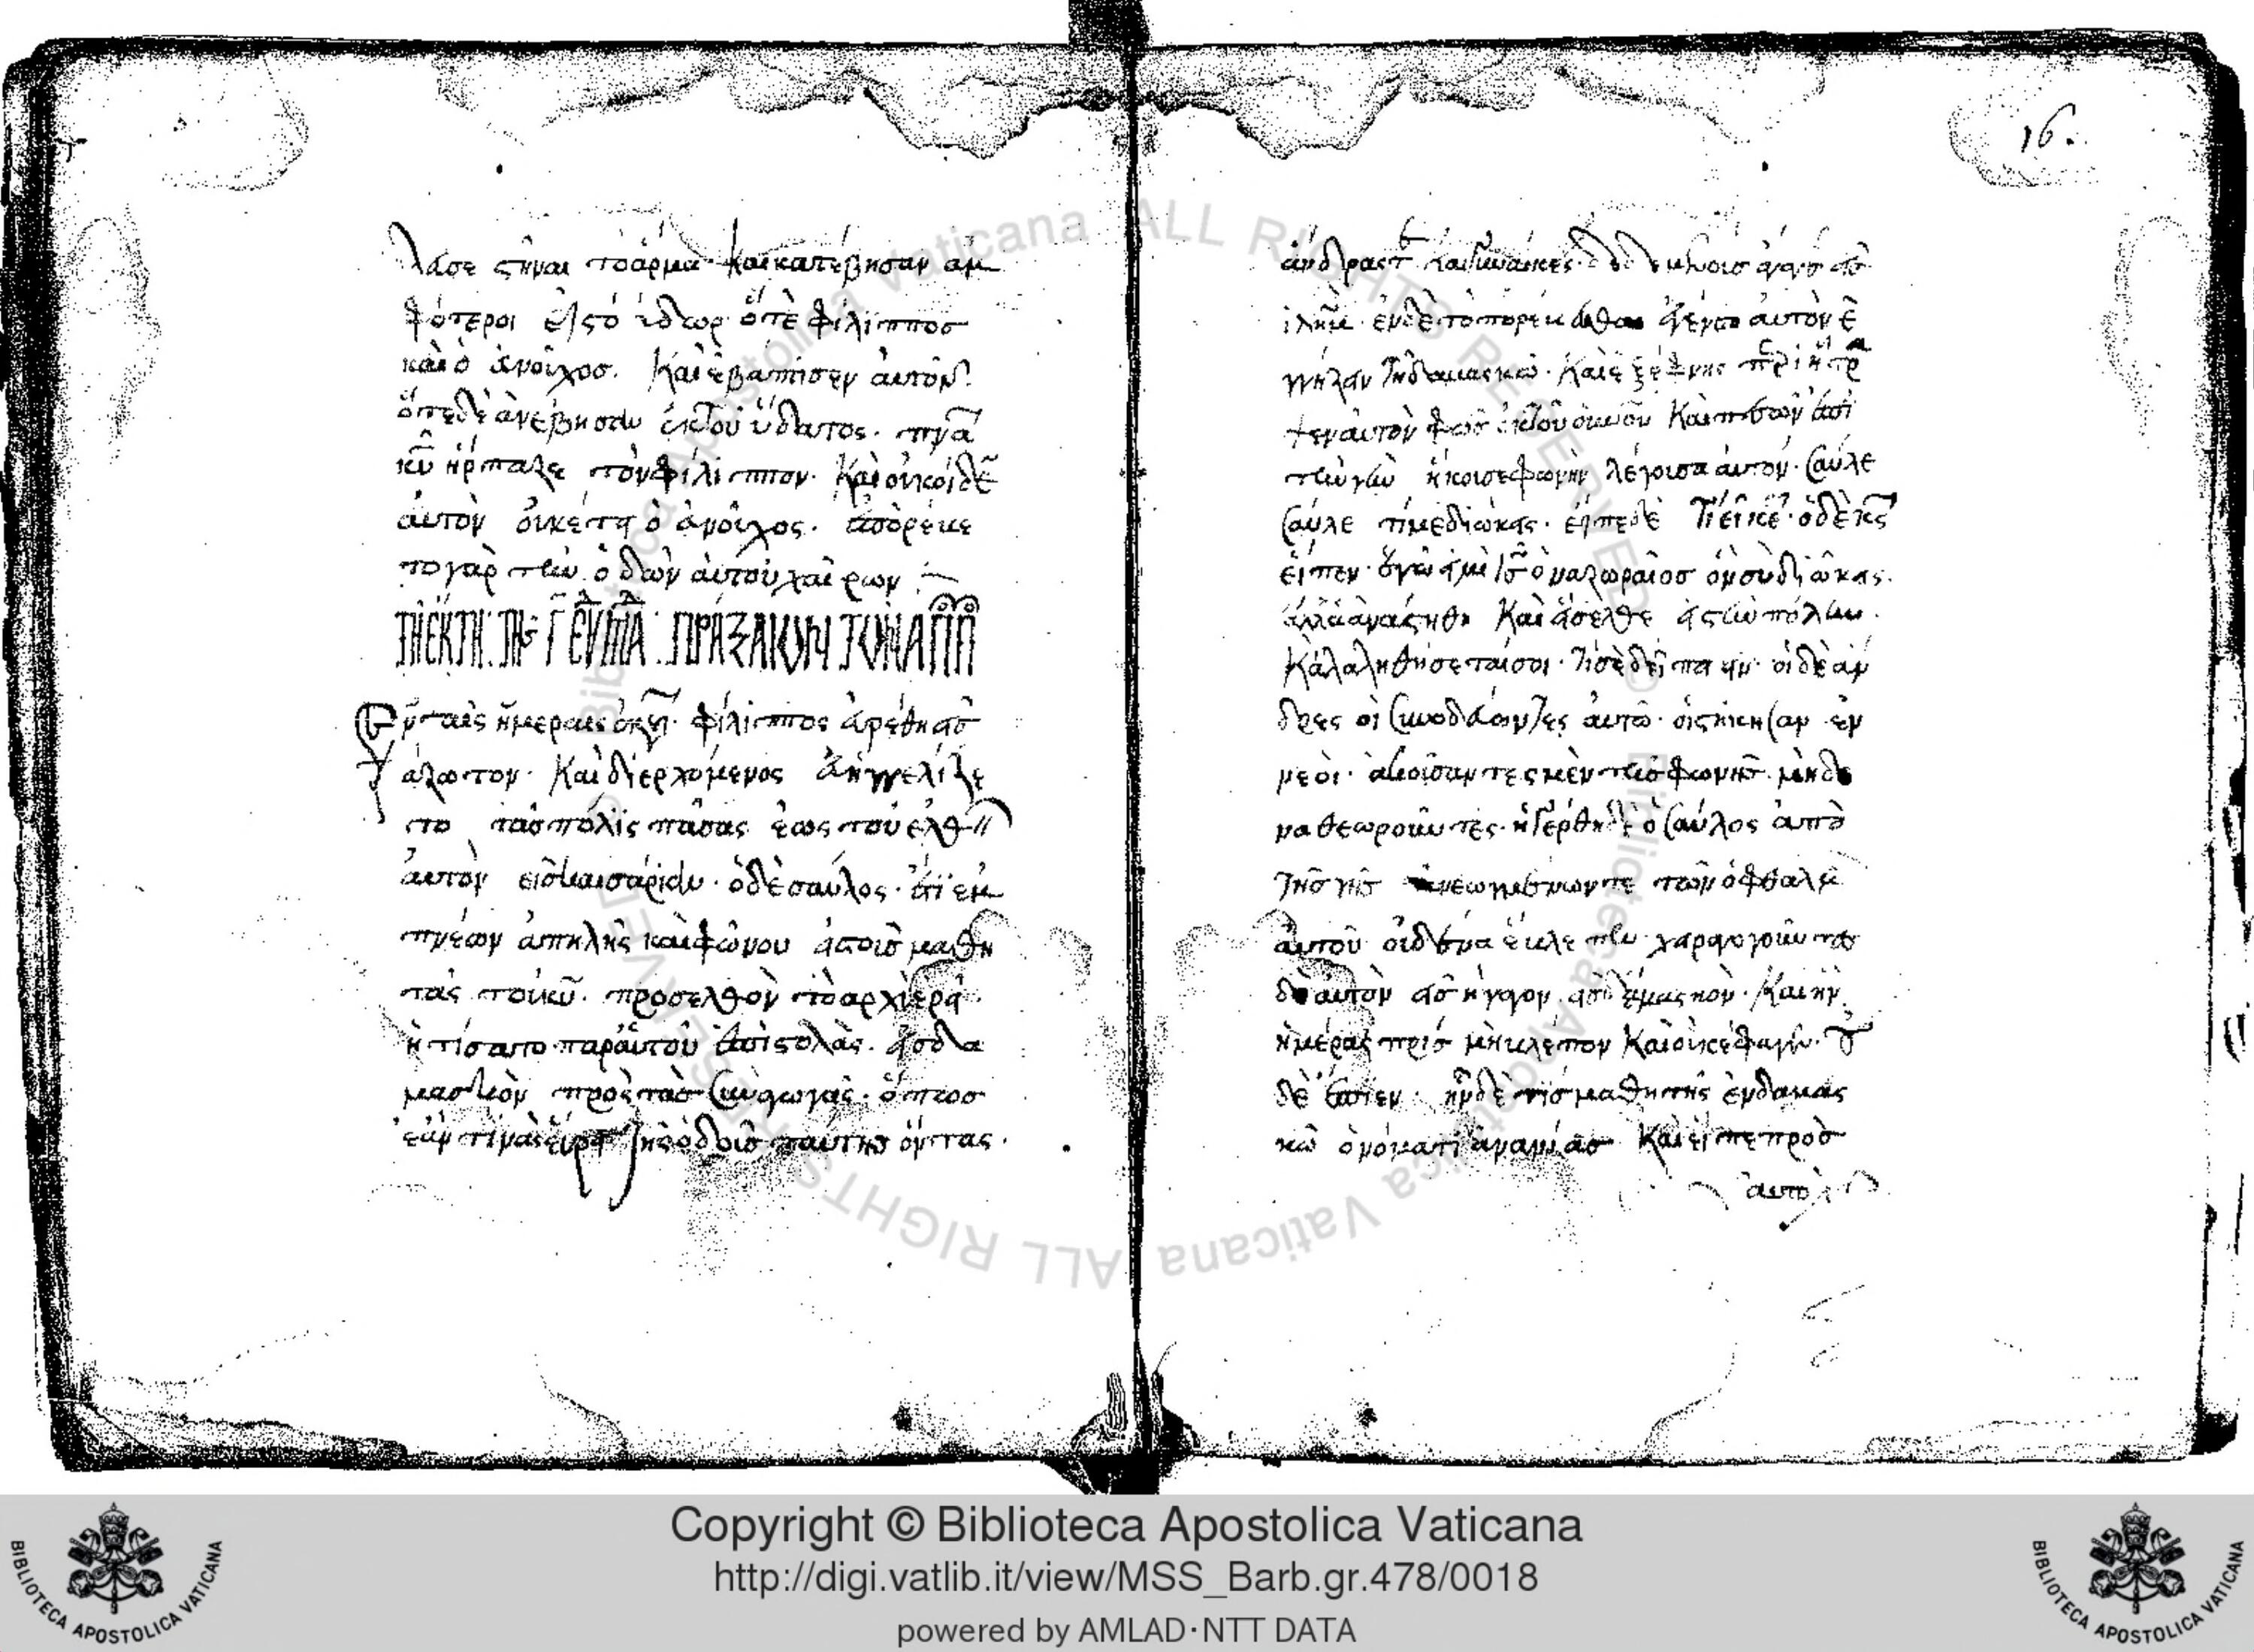 λασε στῆναι τὸ ἅρμα· καὶ κατέβησαν ἀμ
φότεροι εἰς τὸ ὕδωρ ὅτε φίλιππος
καὶ ὁ ἐνοῦχος. Καὶ ἐβάπτισεν αὐτόν.
ὅτε δὲ ἀνέβησαν ἐκ τοῦ ὕδατος· πνα
κυ ἥρπαξε τὸν φίλιππον· Καὶ οὐκ οἶδεν
αὐτὸν οὐκέτη ὁ ἐνοῦχος· ἐπορέβε
το γὰρ τὴν ὁδὸν αὐτοῦ χαίρων
ΤΗ ΕΚΤΗ· ΤΗΣ Γ ΕΒΔΜΑ· ΠΡΑΞΑΙΩΝ ΤΩΝ ΑΠΠ
Ἐν ταῖς ἡμέραις ἐκει· φίλιππος εὑρέθη εἰσ
ἄζωτον· Καὶ διερχόμενος εὐηγγελίζε
το τὰς πόλις πάσας ἕως τοῦ ἐλθ
αὐτὸν εἰς καισαρίαν· ὁ δὲ σαῦλος· ἔτι ἐμ
πνέων ἀπηλῆς καὶ φώνου εἰς τοὺς μαθη
τὰς τοῦ κυ· προσελθὸν τὸ ἀρχιερεῖ·
ἠτίσατο παρ' αὐτοῦ ἐπιστολὰς· εἰς δα
μασκὸν πρὸς τὰς συναγωγάς· ὅπως
ἐάν τινας εὕρη τῆς ὁδοῦ ταύτης ὄντας·
16.
ἄνδρας τε Καὶ γυναῖκες· δεδεμένους ἀγάγη εἰς
ιλημ· ἐν δὲ τὸ πορεύεσθαι ἐγένετο αὐτὸν ἐ
γγήζην τῆ δαμασκῶ· Καὶ ἐξέφνης περιήστρ
ψεν αὐτὸν φῶς ἐκ τοῦ οὐνοῦ Καὶ πεσὼν ἐπὶ
τὴν γῆν ἤκουσε φωνὴν λέγουσα αὐτόν· Σαῦλε
Σαῦλε τί με διώκεις· εἶπε δὲ Τί εἶ κε· ὁ δὲ κς
εἶπεν· ἐγώ εἰμι ις ὁ ναζωραῖος ὃν σὺ διώκεις.
ἀλλὰ ἀνάστηθι Καὶ εἴσελθε εἰς τὴν πόλην·
Κὰ λαληθήσεται σοι· τί σε δεῖ ποιειν· οἱ δὲ ἄν
δρες οἱ συνοδεύοντες αὐτῶ· εἱστήκησαν ἐν
νεοὶ· ἀκούσαντες μὲν τῆς φωνῆς· μηδε
να θεωροῦντες· ἠγέρθη δὲ ὁ Σαῦλος ἀπὸ
τῆς γῆς ἀνεωγμένων τε τῶν ὀφθαλμ
αὐτοῦ οὐδένα ἔβλεπεν· χειραγογοῦντες
δὲ αὐτὸν εἰσήγαγον εἰς δαμασκὸν· Καὶ ἦν
ἡμέρας τρις μὴ βλέπον Καὶ οὐκ ἔφαγεν· οὐ
δὲ ἔπιεν· ἦν δὲ τις μαθητὴς ἐν δαμας
κῶ ὀνόματι ἀνανίας Καὶ εἶπε πρὸς
αὐτὸ
Copyright © Biblioteca Apostolica Vaticana
http://digi.vatlib.it/view/MSS_Barb.gr.478/0018
powered by AMLAD·NTT DATA